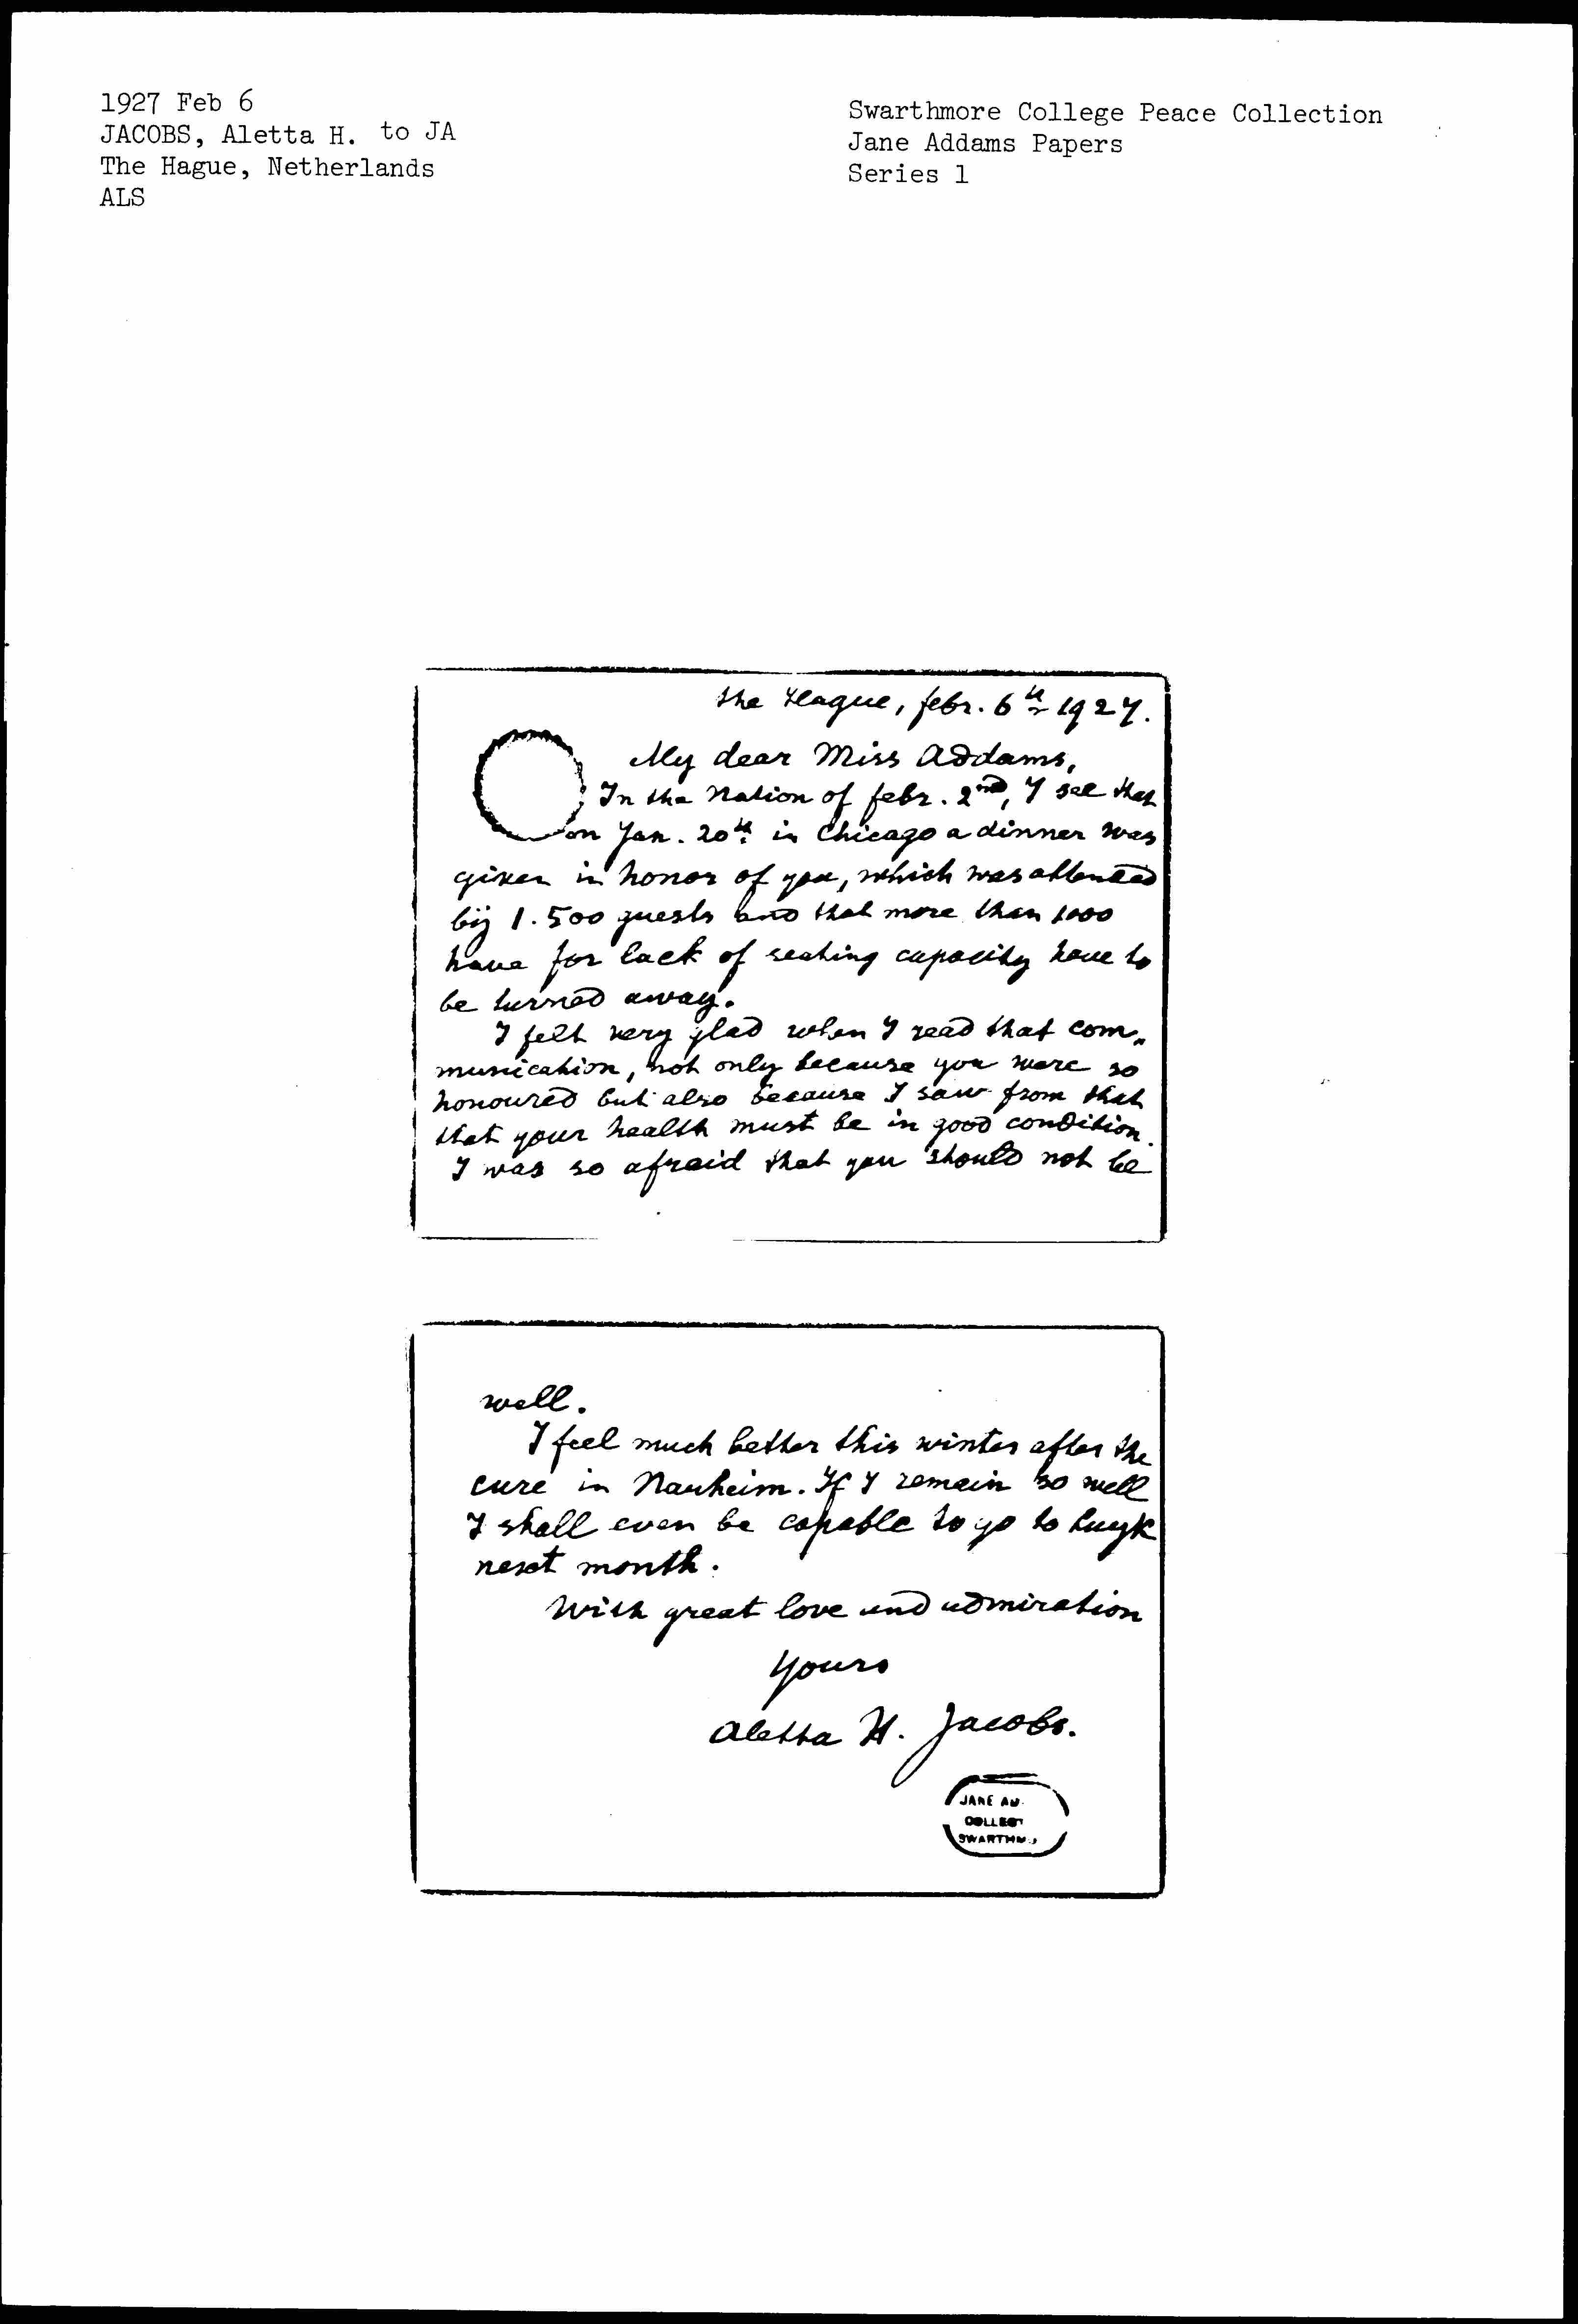 1927 Feb 6
JACOBS, Aletta H. to JA
The Hague, Netherlands
ALS
Swarthmore College Peace Collection
Jane Addams Papers
Series 1
the Hague, febr. 6th 1927.
My dear Miss Addams,
In the Nation of febr. 2nd, I see that
on Jan. 20th in Chicago a dinner was
given in honor of you, which was attended
bÿ 1.500 guests and that more than 1000
have for lack of seating capacity have to
be turned away.
I felt very glad when I read that com„
munication, not only because you were so
honoured but also because I saw from that
that your health must be in good condition.
I was so afraid that you should not be
well.
I feel much better this winter after the
cure in Nauheim. If I remain so well
I shall even be capable to go to
next month.
With great love and admiration
Yours
Aletta H. Jacobs.
JANE AD
COLLECT
SWARTHM